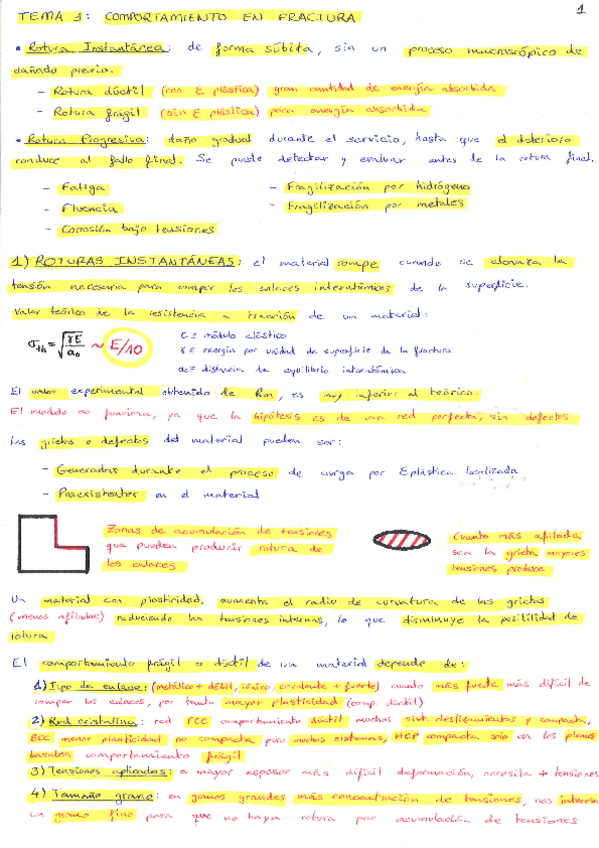 TEMA 1: COMPORTAMIENTO EN FRACTURA
1
• Rotura Instantánea: de forma súbita, sin un proceso macroscópico de
dañado previo.
– Rotura dúctil (con ε plástica) gran cantidad de energía absorbida
– Rotura frágil (sin ε plástica) poca energía absorbida
• Rotura Progresiva: daño gradual durante el servicio, hasta que el deterioro
conduce al fallo final. Se puede detectar y evaluar antes de la rotura final.
– Fatiga
– Fragilización por hidrógeno
– Fluencia
– Fragilización por metales
– Corrosión bajo tensiones
1) ROTURAS INSTANTÁNEAS: el material rompe cuando se alcanza la
tensión necesaria para romper los enlaces interatómicos de la superficie.
Valor teórico de la resistencia a tracción de un material:
σth = √(γE/a₀) ~ E/10
E = módulo elástico
γ = energía por unidad de superficie de la fractura
a₀ = distancia de equilibrio interatómica
El valor experimental obtenido de Rm, es muy inferior al teórico.
El modelo no funciona, ya que la hipótesis es de una red perfecta, sin defectos
Las grietas o defectos del material pueden ser:
– Generados durante el proceso de carga por ε plástica localizada
– Preexistentes en el material
Zonas de acumulación de tensiones
que pueden producir rotura de
los enlaces
Cuanto más afilada
sea la grieta mayores
tensiones produce
Un material con plasticidad, aumenta el radio de curvatura de las grietas
(menos afiladas) reduciendo las tensiones internas, lo que disminuye la posibilidad de
rotura
El comportamiento frágil o dúctil de un material depende de:
1) Tipo de enlace: (metálico + débil, iónico/covalente + fuerte) cuanto más fuerte más difícil de
romper los enlaces, por tanto mayor plasticidad (comp. dúctil)
2) Red cristalina: red FCC comportamiento dúctil muchos sist. deslizamientos y compacta,
BCC menor plasticidad no compacta pero muchos sistemas, HCP compacta solo en los planos
basales comportamiento frágil
3) Tensiones aplicadas: a mayor espesor más difícil deformación, necesita + tensiones
4) Tamaño grano: en granos grandes más concentración de tensiones, nos interesa
un grano fino para que no haya rotura por acumulación de tensiones